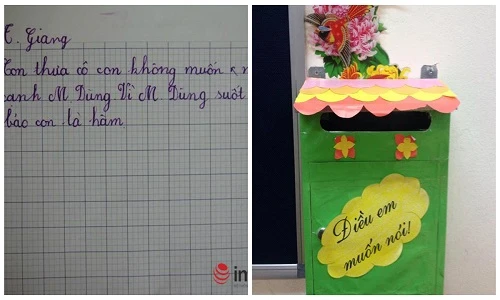 E. Giang
Con thưa cô con không muốn
cạnh M Dũng Vì M Dũng suốt
bảo con là hâm
Điều em
muốn nói!